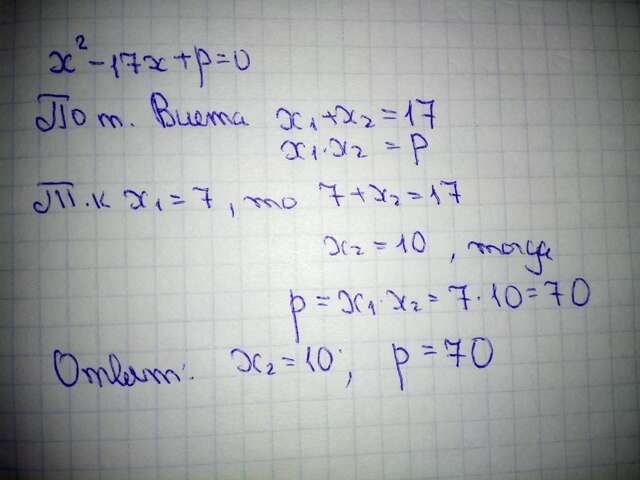 x² - 17x + p = 0
По т. Виета x₁ + x₂ = 17
x₁ · x₂ = p
Т.к x₁ = 7, то 7 + x₂ = 17
x₂ = 10, тогда
p = x₁ · x₂ = 7 · 10 = 70
Ответ: x₂ = 10; p = 70